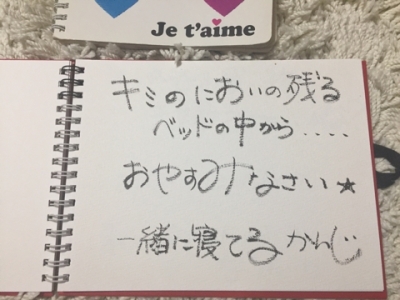 Je t'aime
キミのにおいの残る
ベッドの中から....
おやすみなさい★
一緒に寝てるかんじ